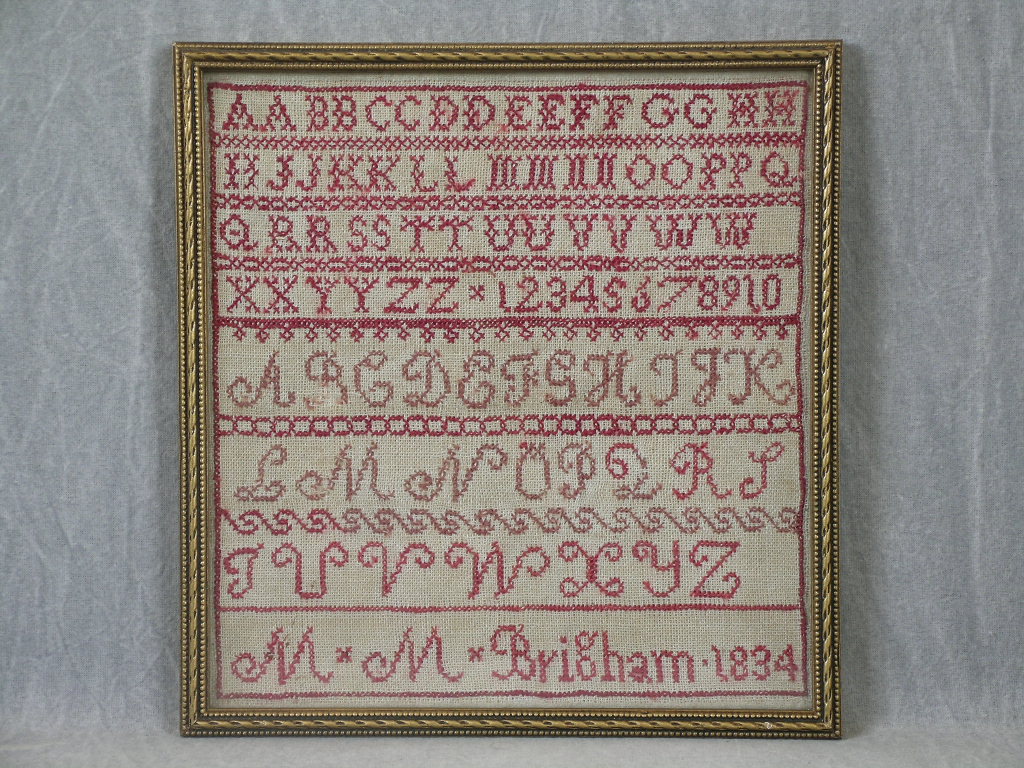 A A B B C C D D E E F F G G H H
I I J J K K L L M M N N O O P P Q
Q R R S S T T U U V V W W
X X Y Y Z Z * 1 2 3 4 5 6 7 8 9 10
A B C D E F G H I J K
L M N O P Q R S
T U V W X Y Z
M * M * Brigham · 1834